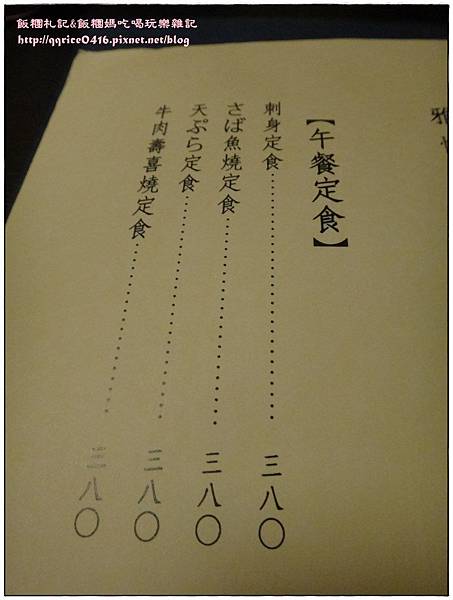 飯糰札記&飯糰媽吃喝玩樂雜記
http://qqrice0416.pixnet.net/blog
【午餐定食】
刺身定食……………………三八〇
さば魚燒定食……………………三八〇
天ぷら定食……………………三八〇
牛肉壽喜燒定食……………………三八〇